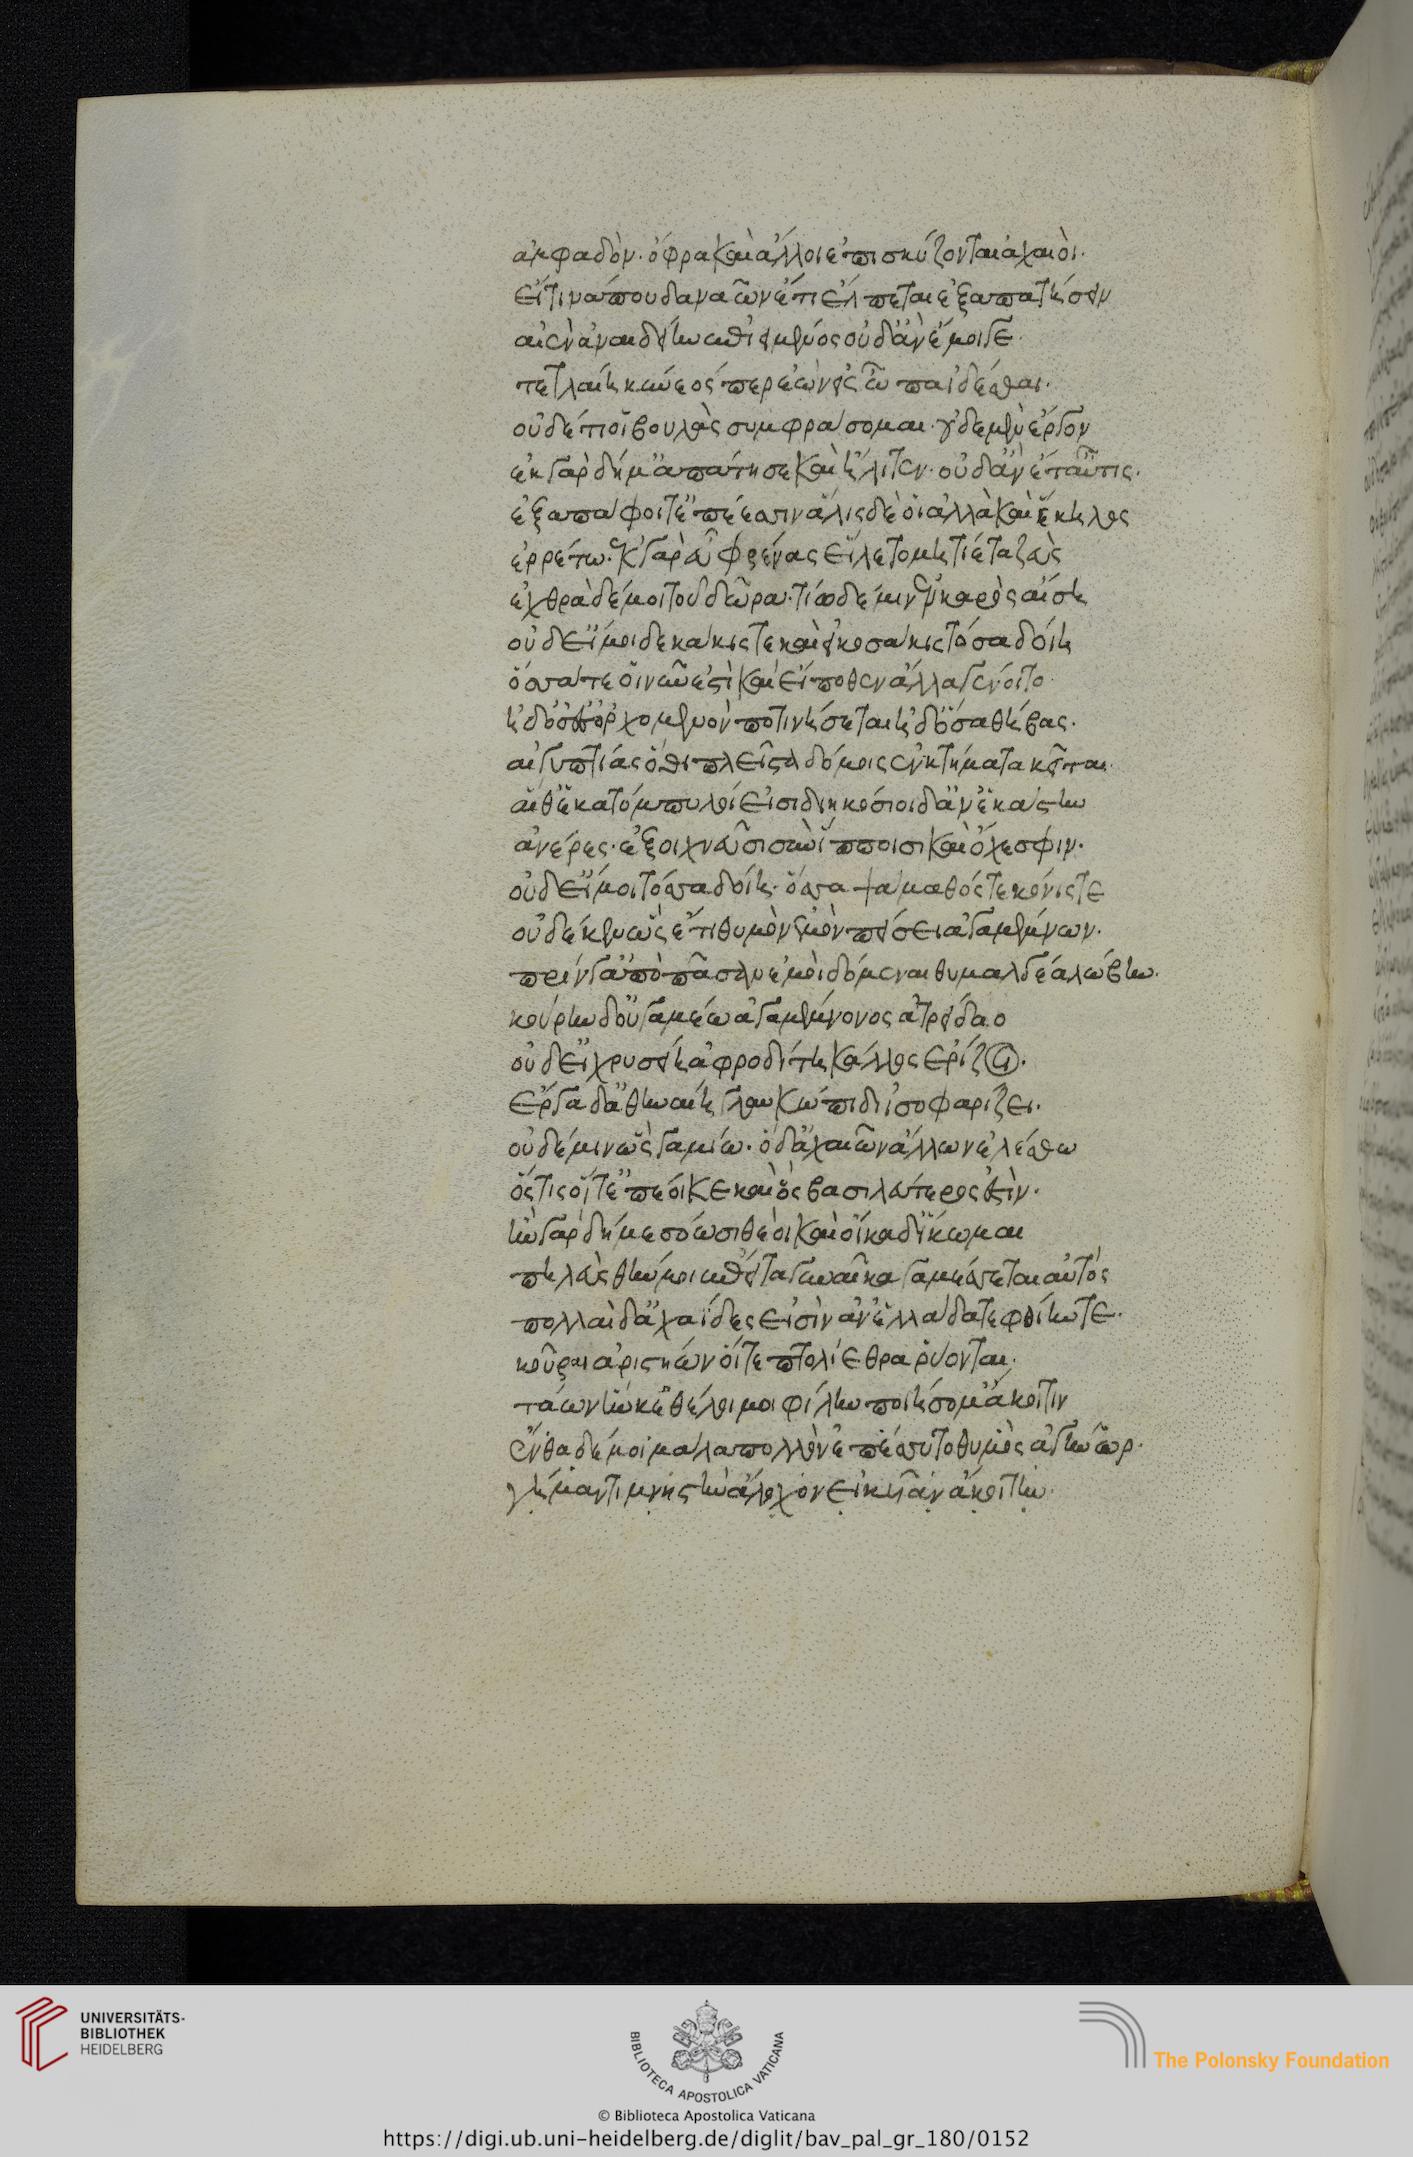 ἀμφαδὸν· ὄφρα καὶ ἄλλοι ἐπισκύζονται ἀχαιοὶ·
εἴ τινά που δαναῶν ἔτι ἔλπεται ἐξαπατήσειν
αἰὲν ἀναιδείην ἐπιειμένος οὐδ' ἂν ἔμοιγε
τετλαίη κύνεός περ ἐὼν εἰς ὦπα ἰδέσθαι·
οὐδέ τι οἱ βουλὰς συμφράσομαι· οὐδὲ μὲν ἔργον
ἐκ γὰρ δή μ' ἀπάτησε καὶ ἤλιτεν· οὐδ' ἂν ἔτ' αὖτις·
ἐξαπάφοιτ' ἐπέεσσιν ἅλις δὲ οἱ ἀλλὰ καὶ ἕκηλος
ἐρρέτω· ἐκ γὰρ εὖ φρένας εἵλετο μητίετα ζεὺς
ἐχθρὰ δέ μοι τοῦ δῶρα· τίω δέ μιν ἐν καρὸς αἴση
οὐδ' εἴ μοι δεκάκις τε καὶ εἰκοσάκις τόσα δοίη
ὅσσά τε οἱ νῦν ἐστὶ καὶ εἴ ποθεν ἄλλα γένοιτο·
ἠδ' ὅσ' ἐς ὀρχομενὸν ποτινήσεται ἠδ' ὅσα θήβας·
αἰγυπτίας ὅθι πλεῖστα δόμοις ἐν κτήματα κεῖται·
αἵ θ' ἑκατόμπυλοί εἰσι διηκόσιοι δ' ἀν' ἑκάστην
ἀνέρες· ἐξοιχνεῦσι σὺν ἵπποισι καὶ ὄχεσφιν·
οὐδ' εἴ μοι τόσσα δοίη· ὅσσα ψάμαθός τε κόνις τε
οὐδέ κεν ὣς ἔτι θυμὸν ἐμὸν πείσει ἀγαμέμνων·
πρίν γ' ἀπὸ πᾶσαν ἐμοὶ δόμεναι θυμαλγέα λώβην·
κούρην δ' οὐ γαμέω ἀγαμέμνονος ἀτρείδαο
οὐδ' εἰ χρυσείη ἀφροδίτη κάλλος ἐρίζοι·
ἔργα δ' ἀθηναίη γλαυκώπιδι ἰσοφαρίζει·
οὐδέ μιν ὣς γαμέω· ὁ δ' ἀχαιῶν ἄλλων ἑλέσθω
ὅς τις οἷ τ' ἐπέοικε καὶ ὃς βασιλεύτερος ἐστὶν·
ἢν γὰρ δή με σόωσι θεοὶ καὶ οἴκαδ' ἵκωμαι
πηλεὺς θήν μοι ἔπειτα γυναῖκα γαμέσσεται αὐτὸς
πολλαὶ δ' ἀχαιΐδες εἰσὶν ἀν' ἑλλάδα τε φθίην τε·
κοῦραι ἀριστήων οἵ τε πτολίεθρα ῥύονται·
τάων ἥν κ' ἐθέλοιμι φίλην ποιήσομ' ἄκοιτιν
ἔνθα δέ μοι μάλα πολλὸν ἐπέσσυτο θυμὸς ἀγήνωρ·
γήμαντι μνηστὴν ἄλοχον εἰκυῖαν ἄκοιτιν·
UNIVERSITÄTS-
BIBLIOTHEK
HEIDELBERG
BIBLIOTECA APOSTOLICA VATICANA
The Polonsky Foundation
© Biblioteca Apostolica Vaticana
https://digi.ub.uni-heidelberg.de/diglit/bav_pal_gr_180/0152